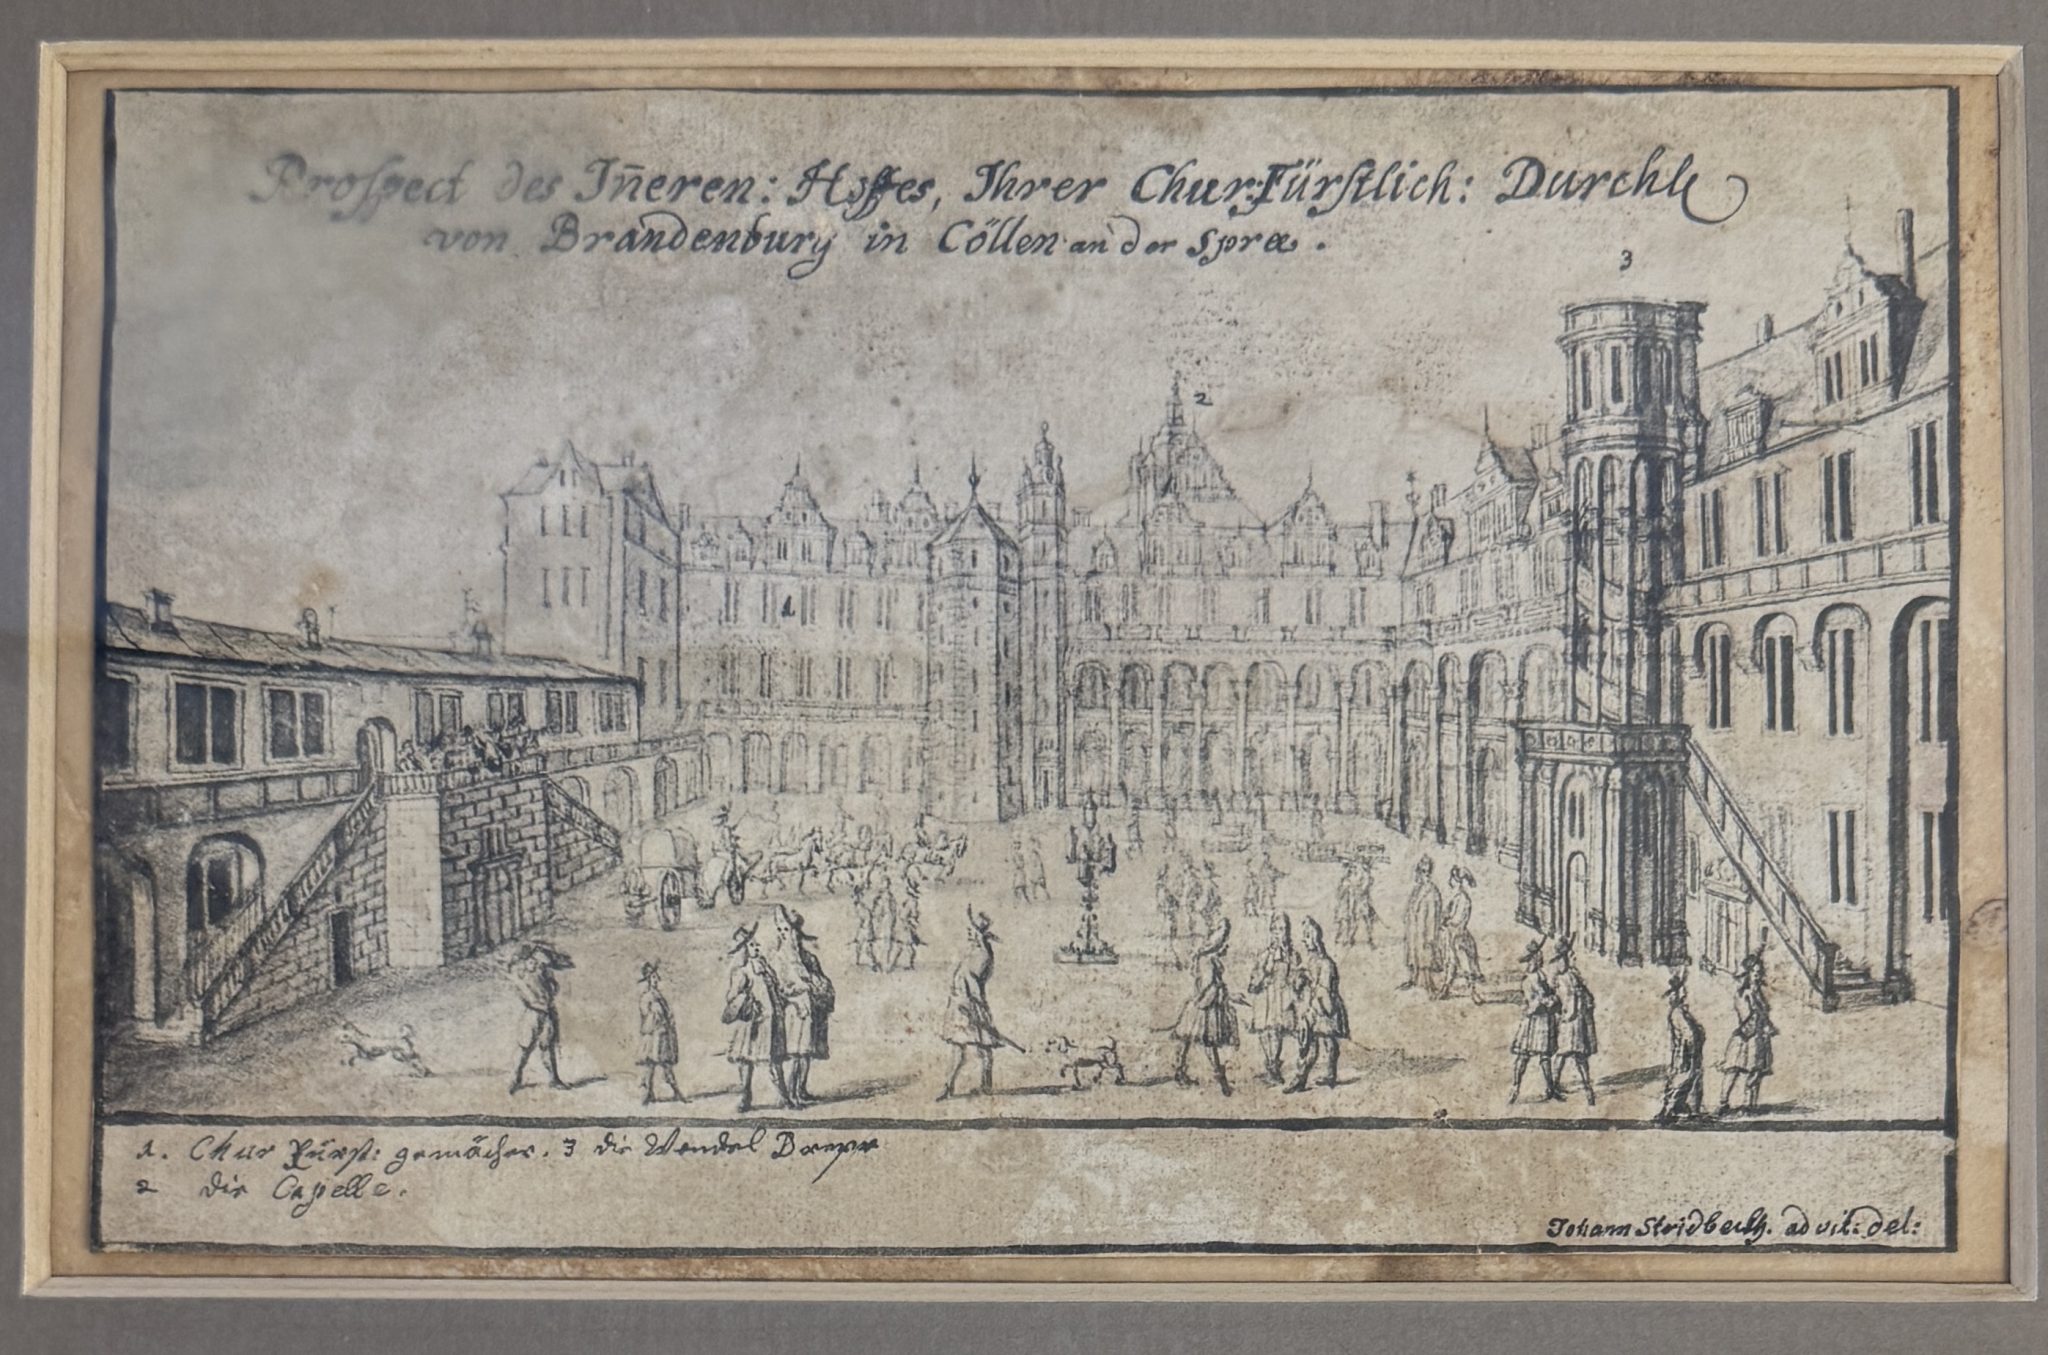 Prospect des Iñeren: Hoffes, Ihrer Chur:Fürstlich: Durchl
von Brandenburg in Cöllen an der Spree.
3
2
1
1. Chur Fürst: gemächer. 3 die Wendel
2 die Capelle.
Johann Stridbeckh. ad vit: del: